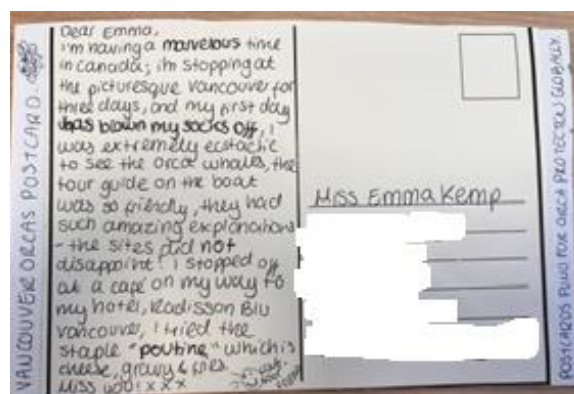 VANCOUVER ORCAS POSTCARD.
Dear Emma,
i'm having a marvelous time
in canada; i'm stopping at
the picturesque vancouver for
three days, and my first day
has blown my socks off, i
was extremely ecstatic
to see the orca whales, the
tour guide on the boat
was so friendly, they had
such amazing explanations
- the sites did not
disappoint! i stopped off
at a cafe on my way to
my hotel, Radisson Blu
vancouver, i tried the
staple "poutine" which is
cheese, gravy & fries.
Miss you! x x x
Miss Emma Kemp
POSTCARDS FUND FOR ORCA PROTECTION GLOBALLY.